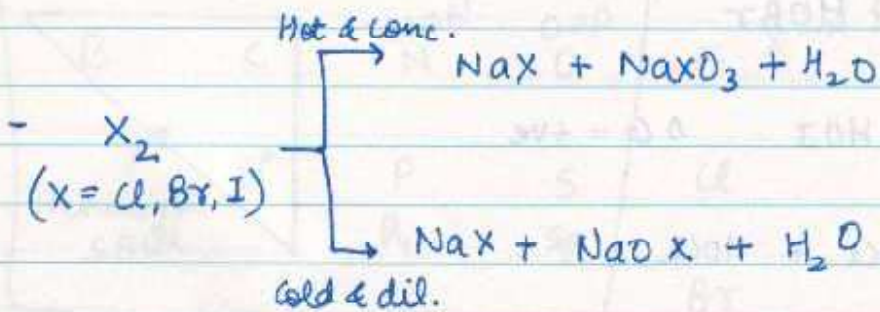 Hot & conc.
NaX + NaXO₃ + H₂O
- X₂
(X = Cl, Br, I)
NaX + NaOX + H₂O
Cold & dil.